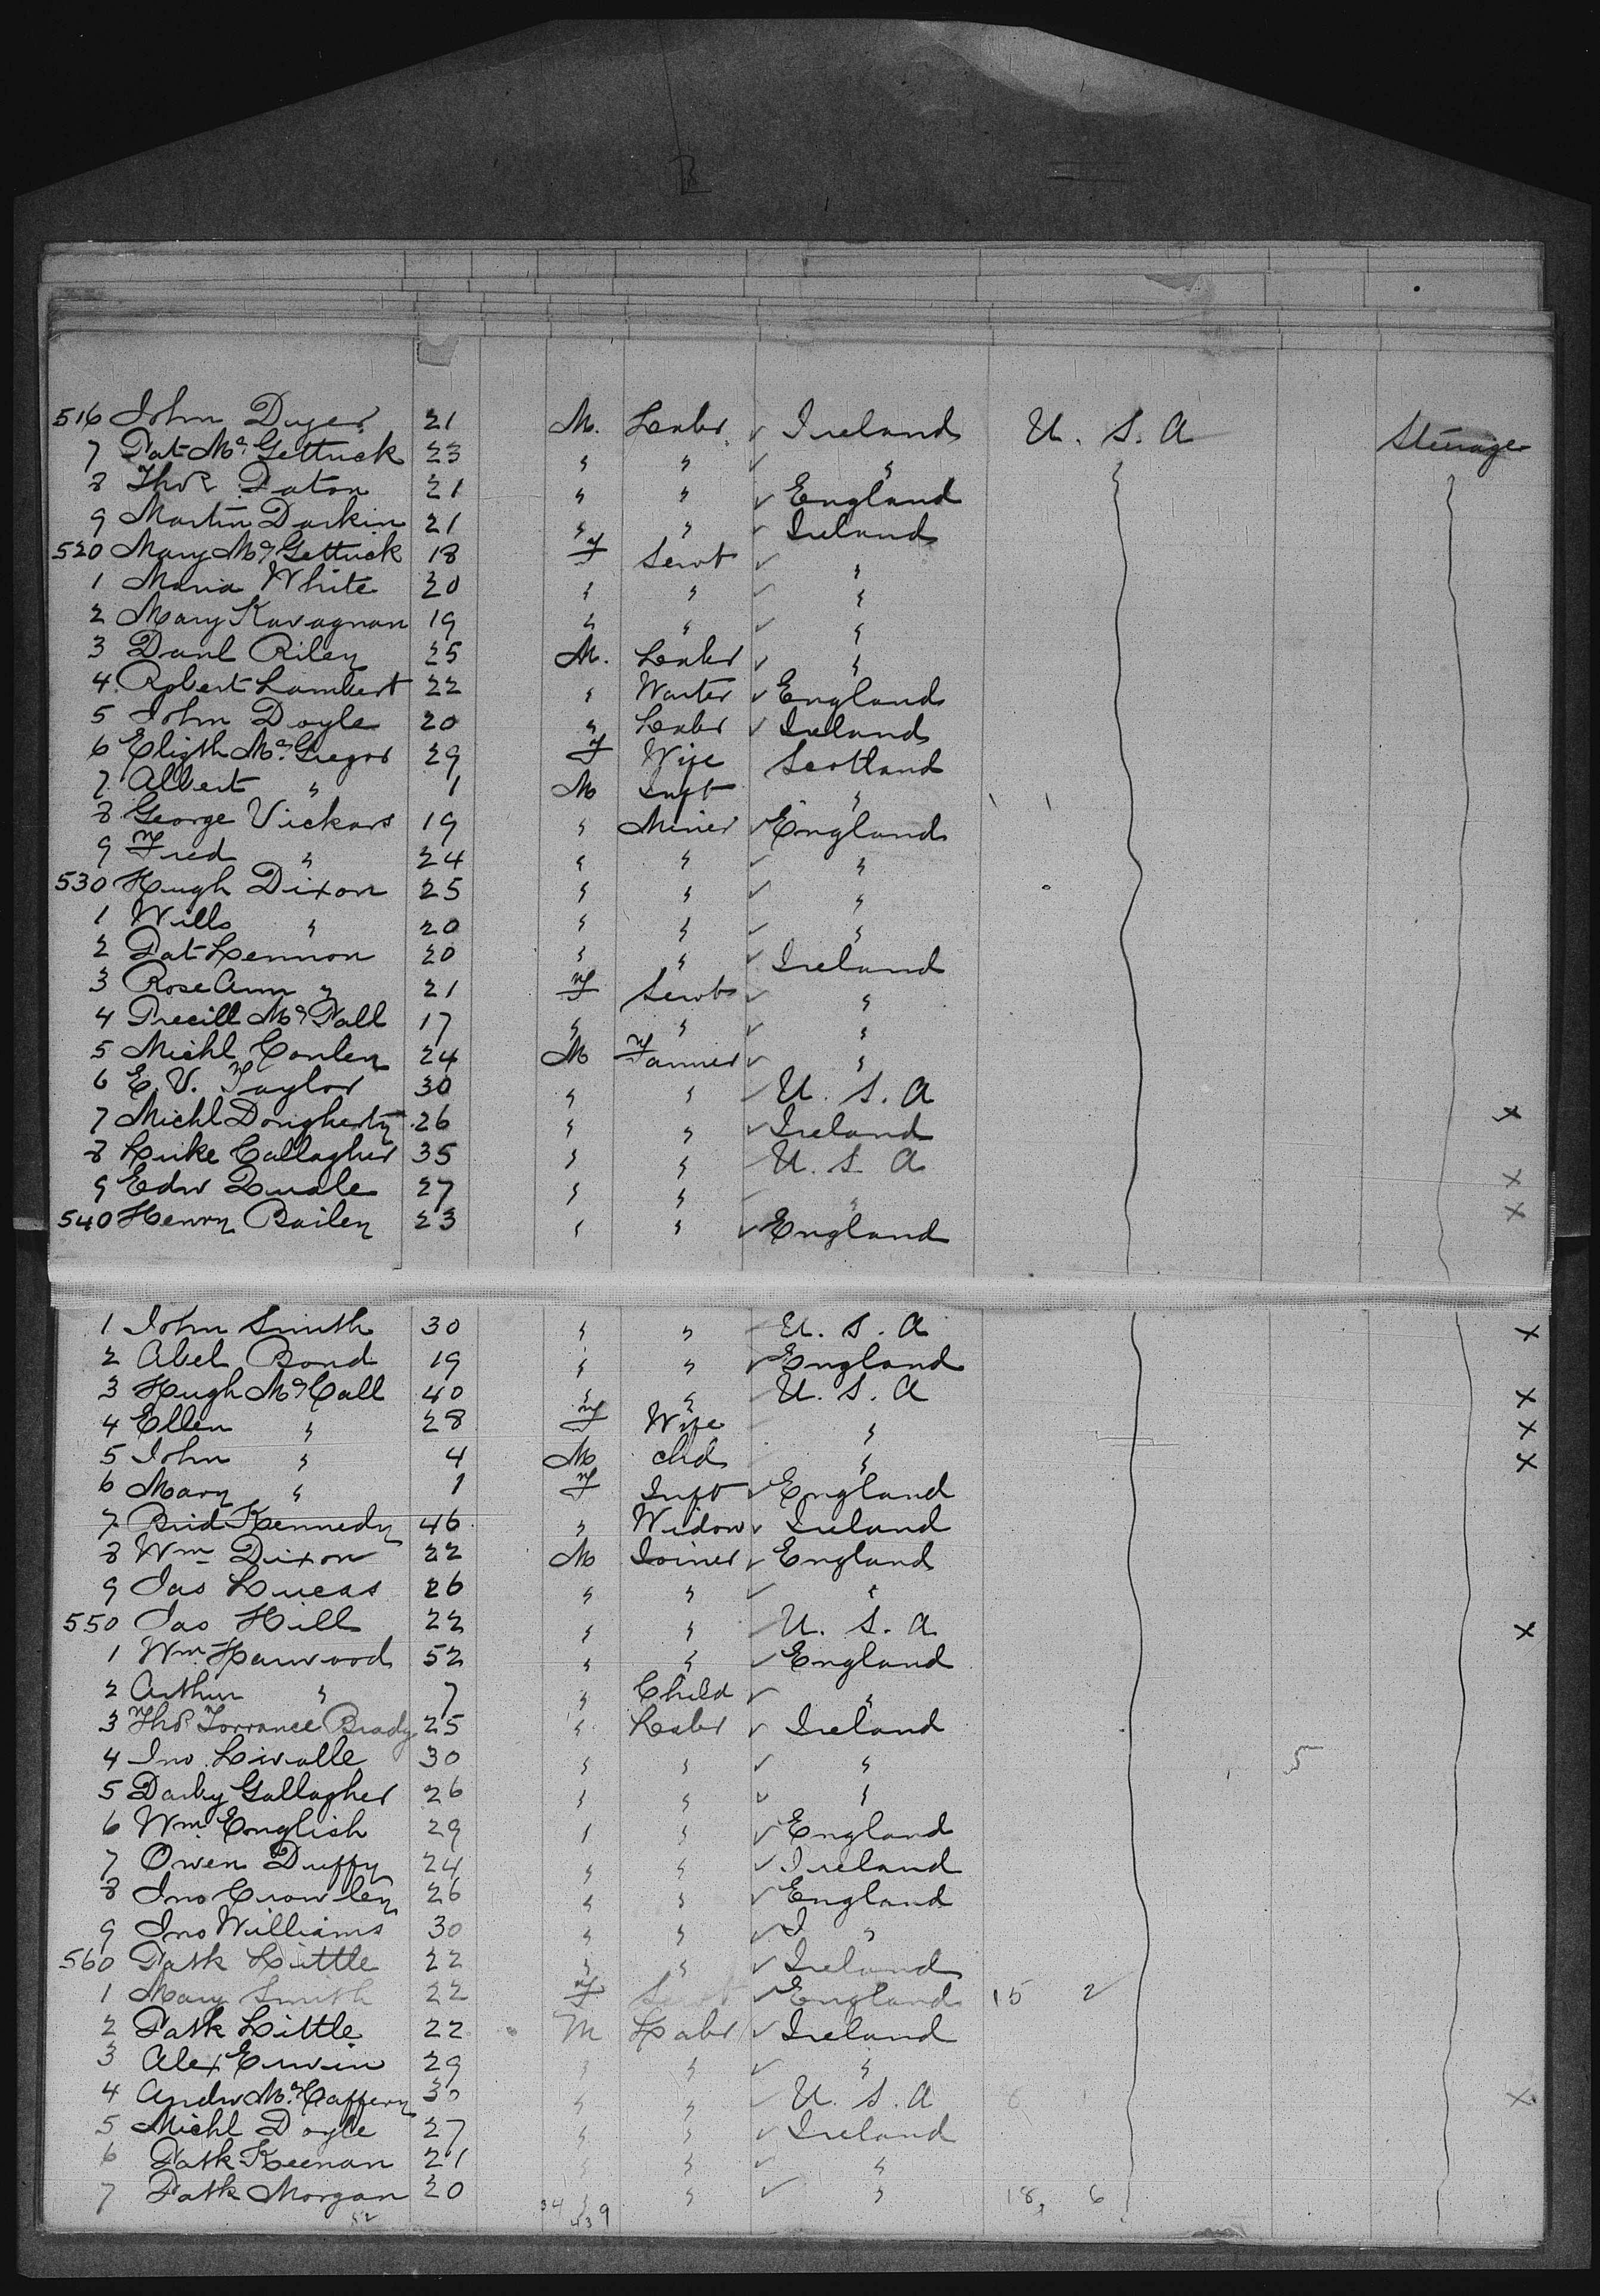 516 John Dyer 21 M. Labr ✓ Ireland U. S. A Steerage
7 Pat McGettrick 23 " " ✓ "
8 Thos Paton 21 " " ✓ England
9 Martin Durkin 21 " " ✓ Ireland
520 Mary McGettrick 18 F Servt ✓ "
1 Maria White 20 " " ✓ "
2 Mary Kavagnan 19 " " ✓ "
3 Danl Riley 25 M. Labr ✓ "
4 Robert Lambert 22 " Waiter ✓ England
5 John Doyle 20 " Labr ✓ Ireland
6 Eligth McGregor 29 F Wife Scotland
7 Albert " 1 M Inft "
8 George Vickars 19 " Miner ✓ England
9 Fred " 24 " " ✓ "
530 Hugh Dixon 25 " " ✓ "
1 Wills " 20 " " ✓ "
2 Pat Lennon 20 " " ✓ Ireland
3 Rose Ann " 21 F Servt ✓ "
4 McFall 17 " " ✓ "
5 Michl Conley 24 M Farmer ✓ "
6 E. V. Taylor 30 " " ✓ U. S. A
7 Michl Dougherty 26 " " ✓ Ireland x
8 Luke Gallagher 35 " " ✓ U. S. A
9 Edw Quale 27 " " ✓ " x
540 Henry Bailey 23 " " ✓ England x
1 John Smith 30 " " ✓ U. S. A x
2 Abel Bond 19 " " ✓ England
3 Hugh McCall 40 " " ✓ U. S. A x
4 Ellen " 28 F Wife ✓ " x
5 John " 4 M chd " x
6 Mary " 1 F Inft ✓ England
7 Brid Kennedy 46 " Widow ✓ Ireland
8 Wm Dixon 22 M Joiner ✓ England
9 Jas Lucas 26 " " ✓ "
550 Jas Hill 22 " " ✓ U. S. A x
1 Wm Harwood 52 " " ✓ England
2 Arthur " 7 " Child ✓ "
3 Thos Torrance Brady 25 " Labr ✓ Ireland
4 Jno Livalle 30 " " ✓ " 5
5 Darby Gallagher 26 " " ✓ "
6 Wm English 29 " " ✓ England
7 Owen Duffy 24 " " ✓ Ireland
8 Jno Crowley 26 " " ✓ England
9 Jno Williams 30 " " ✓ "
560 Patk Little 22 " " ✓ Ireland
1 Mary Smith 22 F Servt ✓ England 15 2
2 Patk Little 22 M Labr ✓ Ireland
3 Alex Erwin 29 " " ✓ "
4 Andw McCaffery 30 " " ✓ U. S. A x
5 Michl Doyle 27 " " ✓ Ireland
6 Patk Keenan 21 " " ✓ "
7 Patk Morgan 20 " " ✓ " 18 6
52 34 439